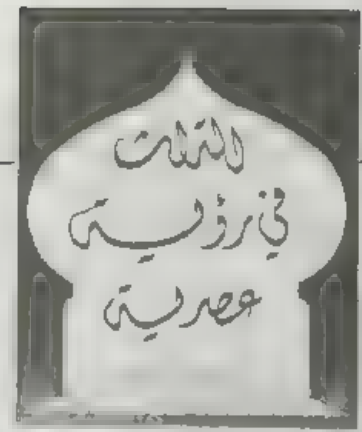 التراث
في رؤية
عصرية